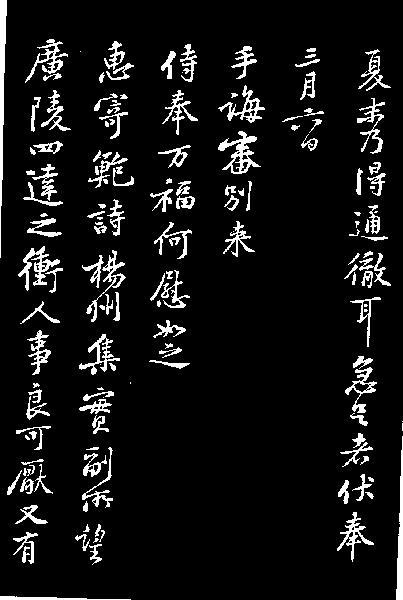 夏秀乃得通徹耳急足者伏奉
三月六日
手誨審別来
侍奉万福何慰如之
惠寄鮑詩楊州集實副所望
廣陵四達之衝人事良可厭又有